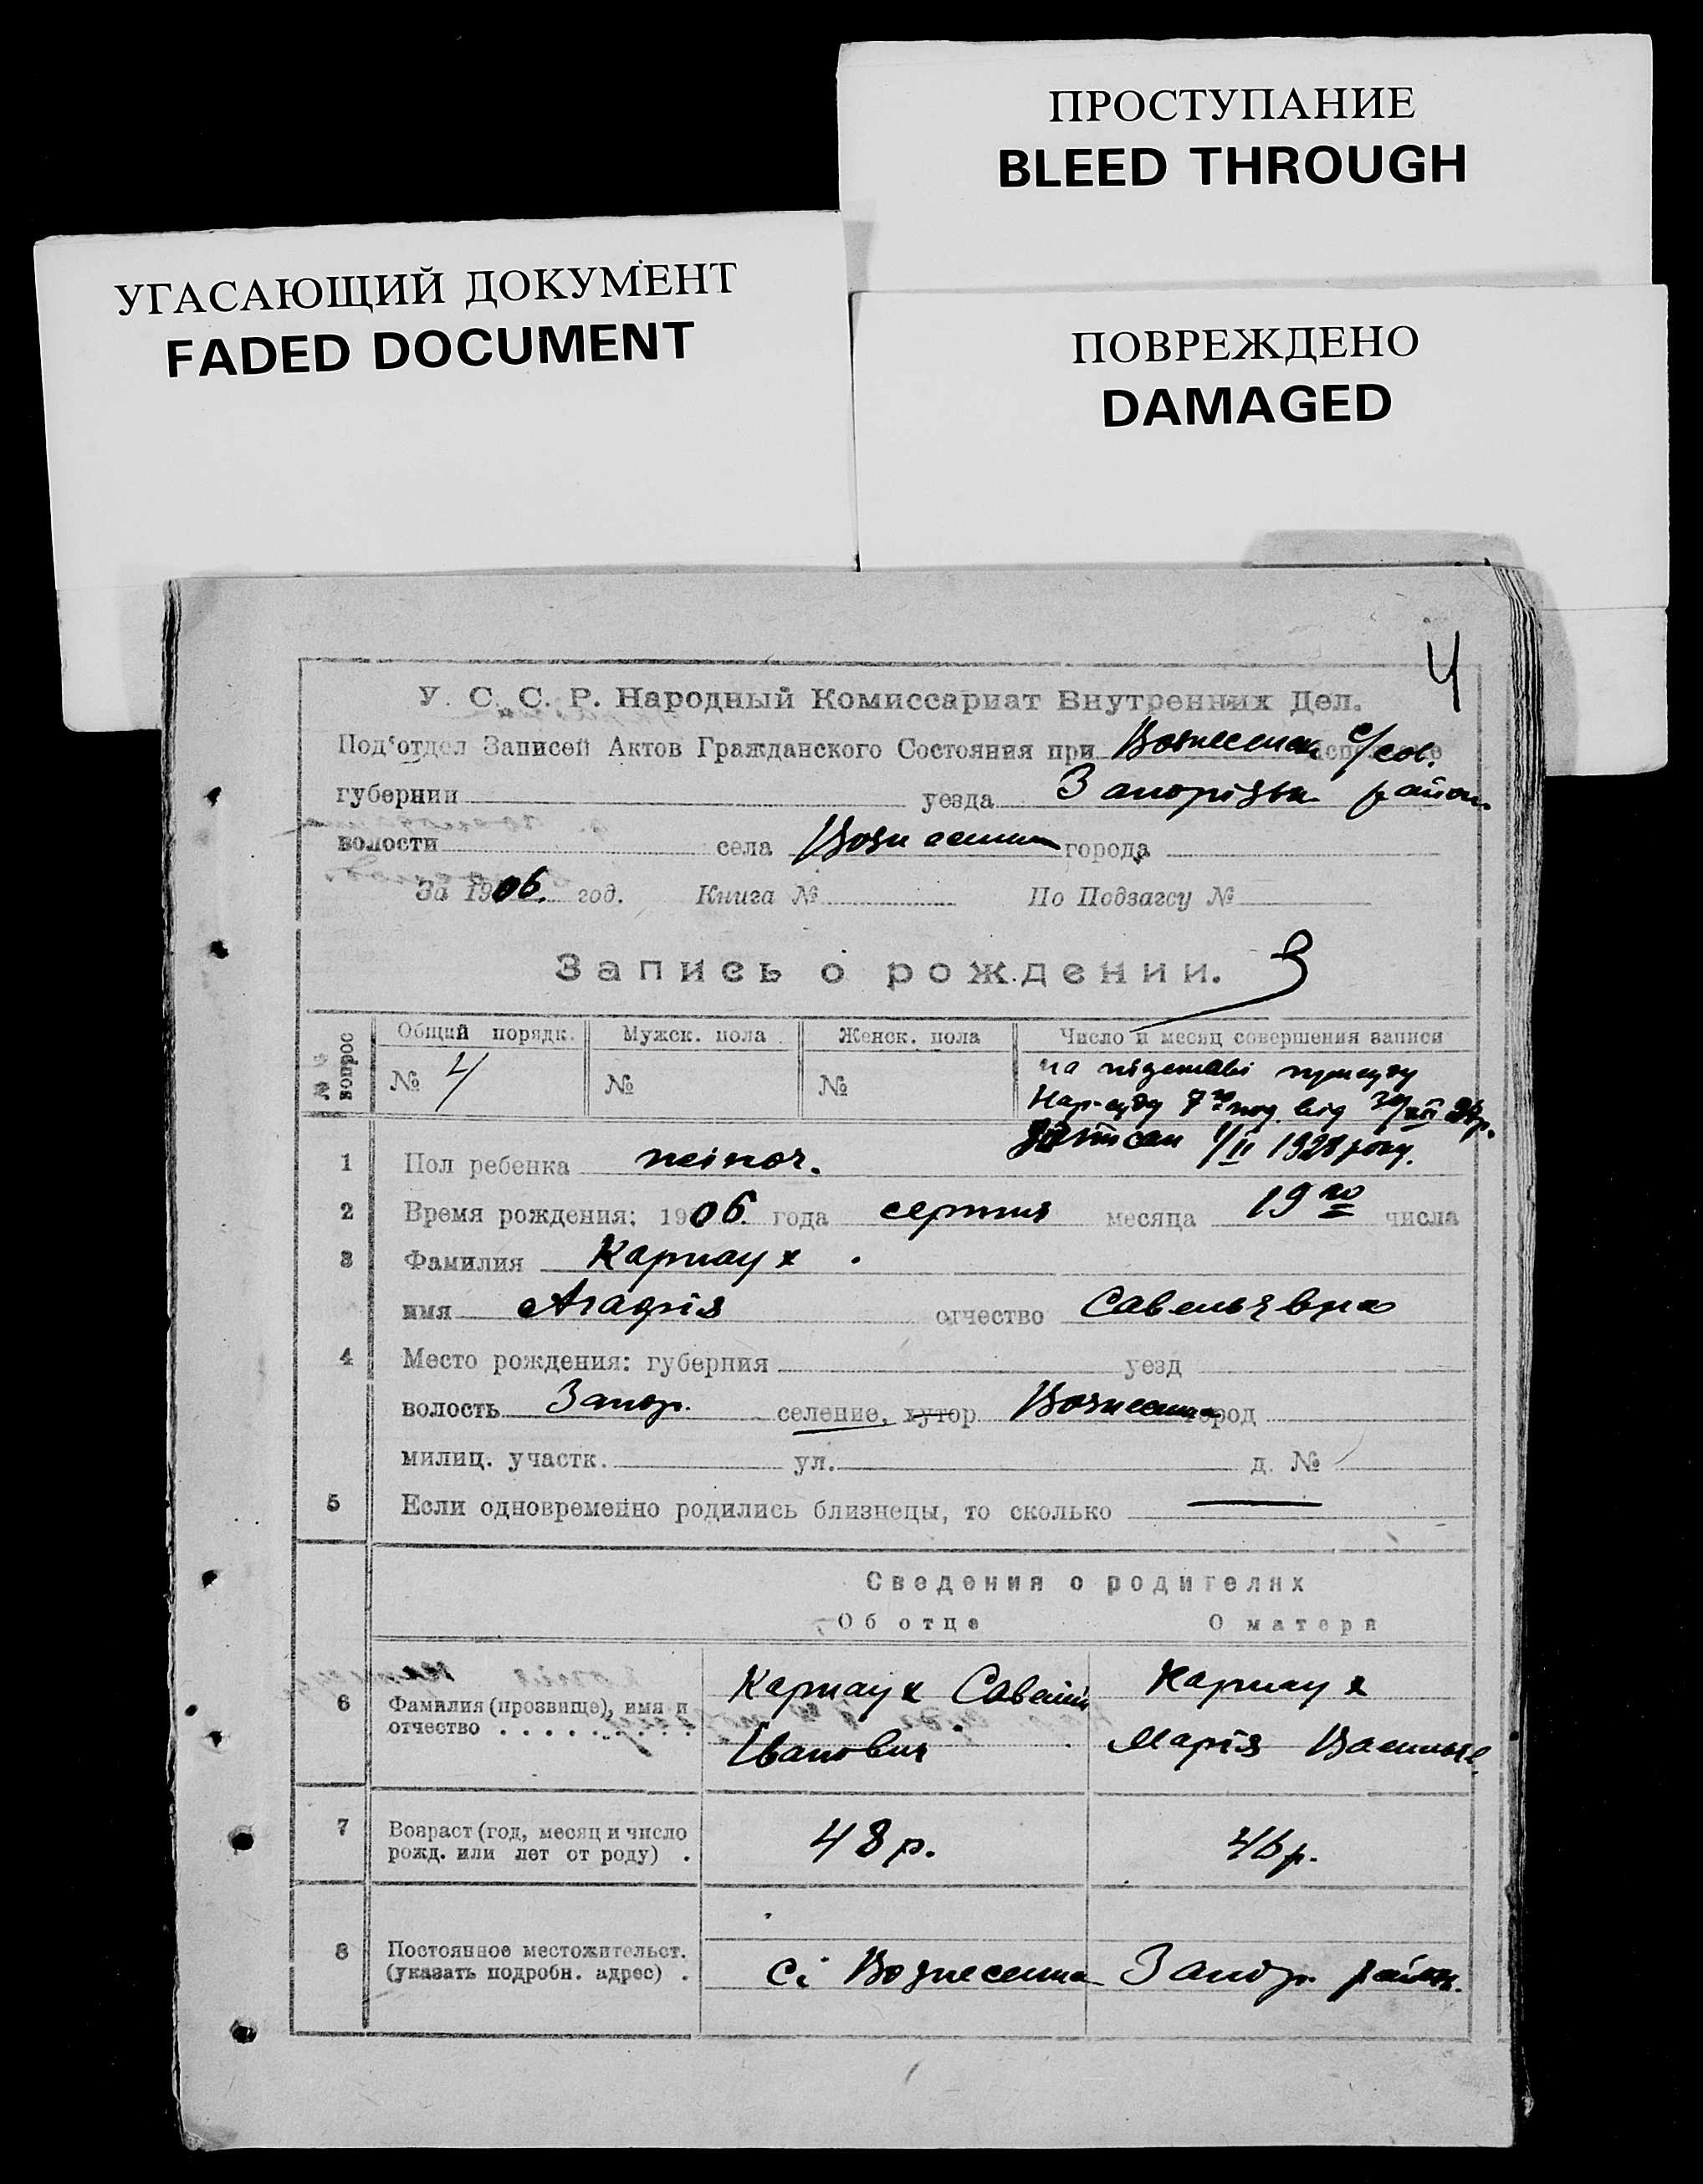 ПРОСТУПАНИЕ
BLEED THROUGH
УГАСАЮЩИЙ ДОКУМЕНТ
FADED DOCUMENT
ПОВРЕЖДЕНО
DAMAGED
4
У. С. С. Р. Народный Комиссариат Внутренних Дел.
Под'отдел Записей Актов Гражданского Состояния при Вознесенск с/сов.
губернии уезда Запорізьк. район.
волости села Вознесенка города
За 1906. год. Книга № По Подзагсу №
Запись о рождении.
№№ вопрос Общий порядк. Мужск. пола Женск. пола Число и месяц совершения записи
№ 4 № № на підставі присуду
Нарсуду 7го від
1/II 1928 року.
1 Пол ребенка жіноч.
2 Время рождения: 1906. года серпня месяца 19го числа
3 Фамилия Карнаух
имя Агафія отчество Савельевна
4 Место рождения: губерния уезд
волость Запор. селение, хутор Вознесенка город
милиц. участк. ул. д. №
5 Если одновременно родились близнецы, то сколько —
Сведения о родителях
Об отце О матери
6 Фамилия (прозвище), имя и отчество Карнаух Савелій Карнаух
Іванович Марія Василье
7 Возраст (год, месяц и число рожд. или лет от роду) 48 р. 46 р.
8 Постоянное местожительст. (указать подробн. адрес) с. Вознесенка Запор. район.